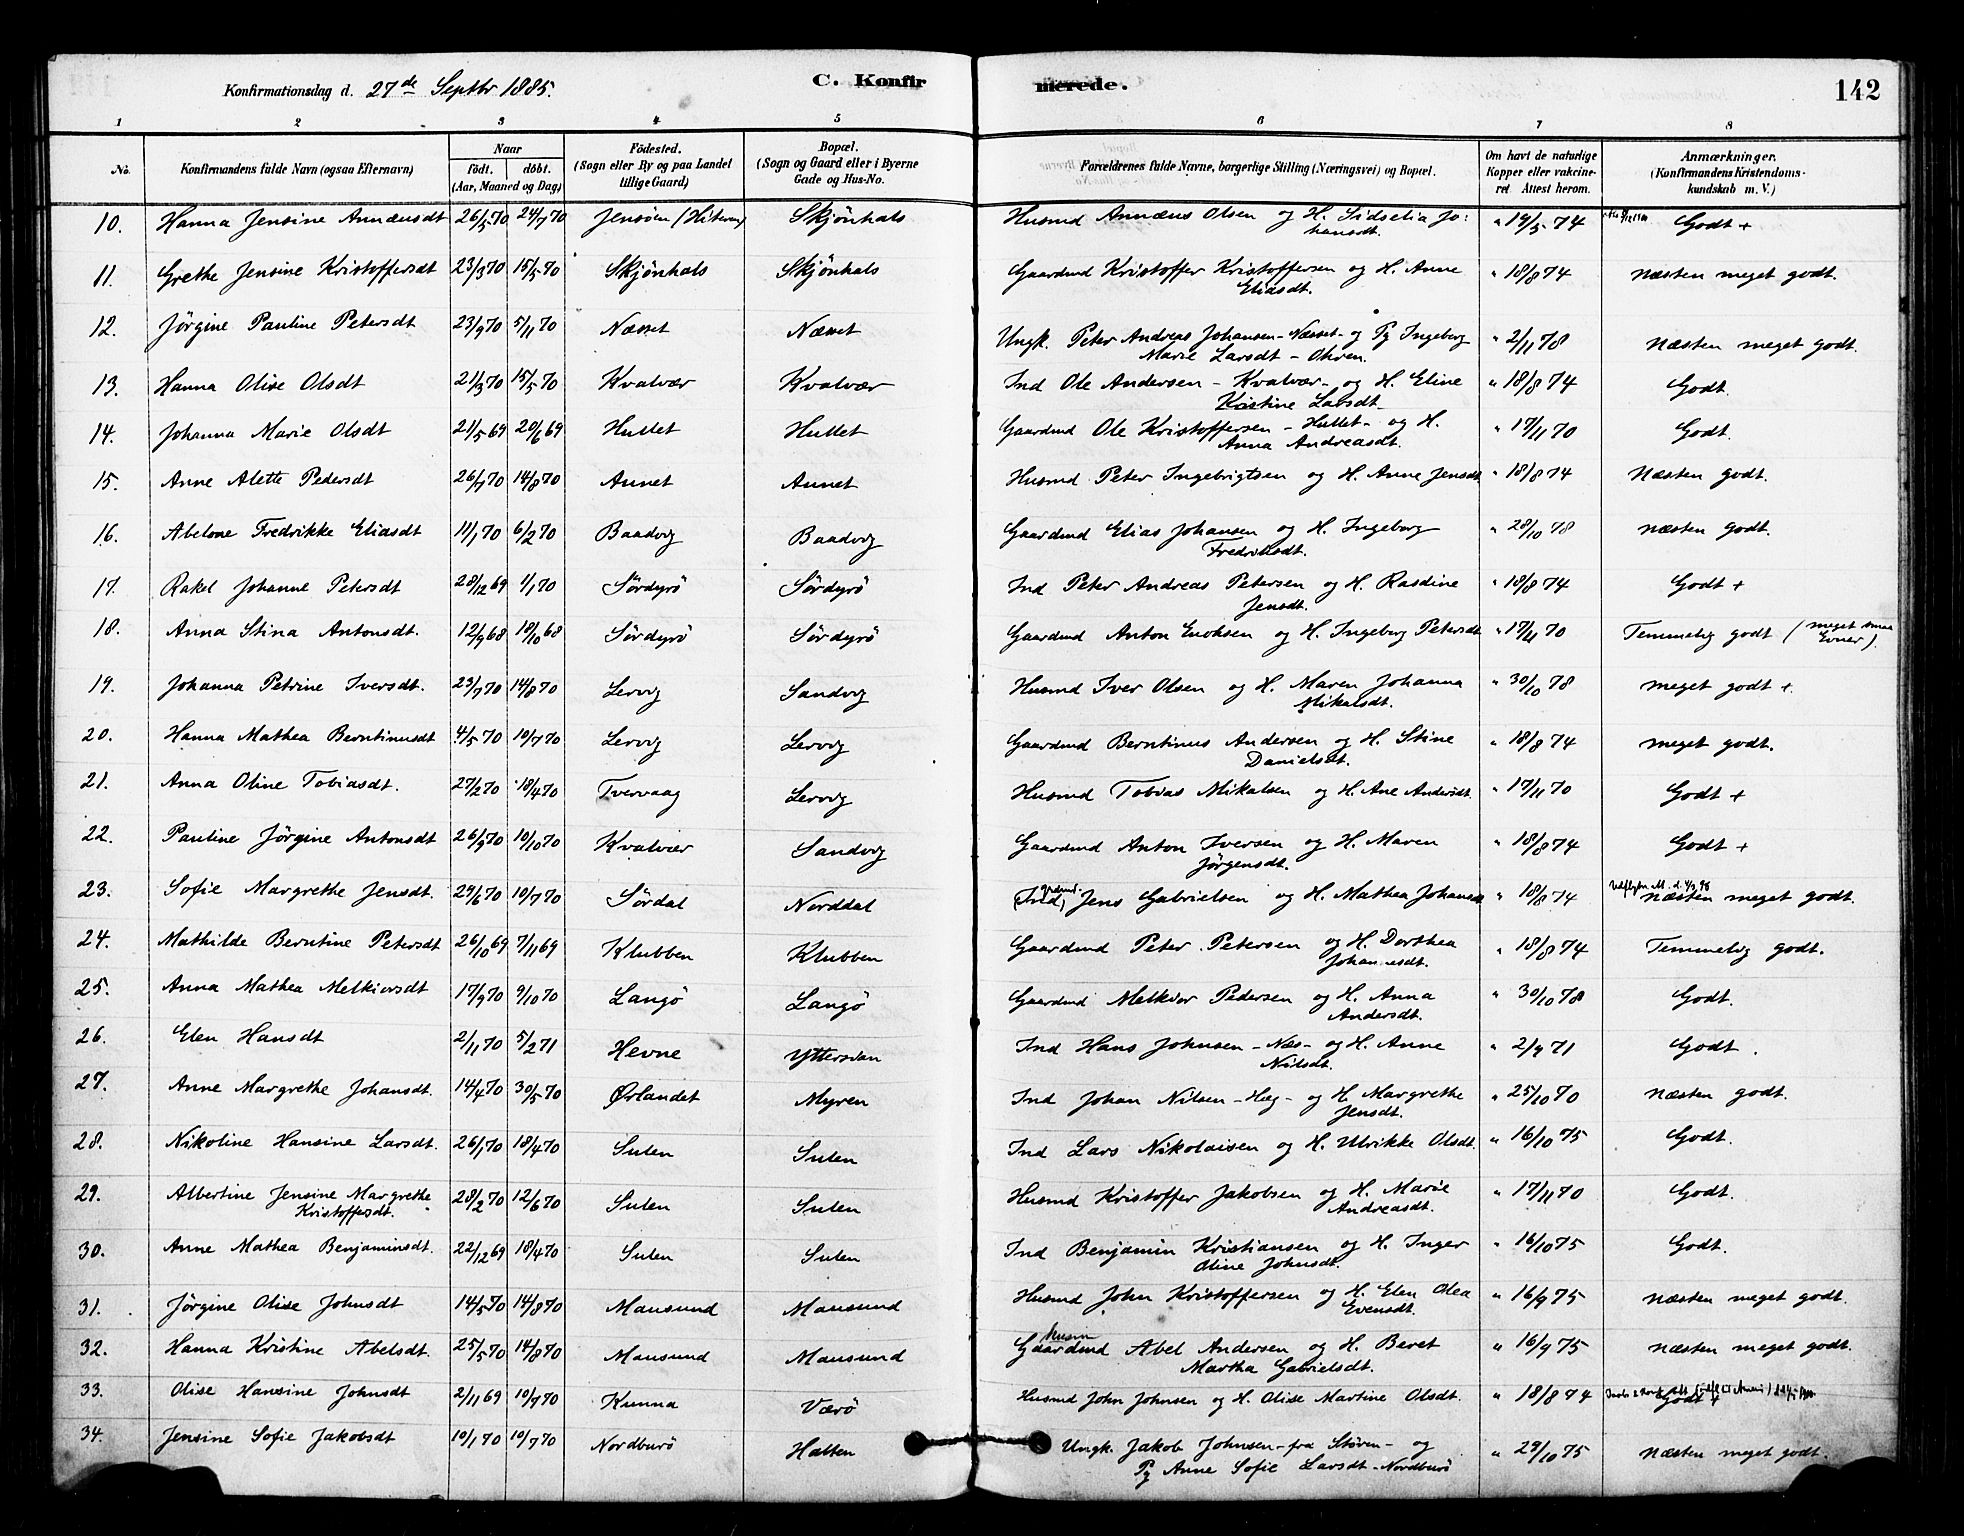 Konfirmationsdag d. 27de Septbr 1885.
C. Konfirmerede.
142
1 2 3 4 5 6 7 8
No. Konfirmandens fulde Navn (ogsaa Efternavn) Naar födt. döbt. (Aar, Maaned og Dag) Födested. (Sogn eller By og paa Landet tillige Gaard) Bopæl. (Sogn og Gaard eller i Byerne Gade og Hus-No. Forældrenes fulde Navne, borgerlige Stilling (Næringsvei) og Bopæl. Om havt de naturlige Kopper eller vakcineret. Attest herom. Anmærkninger. (Konfirmandens Kristendomskundskab m. V.)
10. Hanna Jensine Annæusdt 26/5 70 24/7 70 Jensöen (Hiteren) Skjönhals Husmd Annæus Olsen og H. Sidselia Johansdt. " 19/5 74 Godt +
11. Grethe Jensine Kristoffersdt 23/3 70 15/5 70 Skjönhals Skjönhals Gaardmd Kristoffer Kristoffersen og H. Anne Eliasdt. " 18/8 74 Næsten meget godt.
12. Jörgine Pauline Petersdt 23/9 70 5/11 70 Næsset Næsset Ungk. Peter Andreas Johansen - Næsset - og Pg Ingeborg Marie Larsdt - Ohren. " 2/11 78 Næsten meget godt.
13. Hanna Olise Olsdt 21/3 70 15/5 70 Kvalvær Kvalvær Ind Ole Andersen - Kvalvær - og H. Eline Kristine Larsdt - " 18/8 74 Godt.
14. Johanna Marie Olsdt 21/5 69 20/6 69 Hullet Hullet Gaardmd Ole Kristoffersen - Hullet - og H. Anna Andreasdt. " 17/11 70 Godt.
15. Anne Alette Pedersdt 26/7 70 14/8 70 Aunet Aunet Husmd Peter Ingebrigtsen og H. Anne Jensdt " 18/8 74 Næsten godt.
16. Abelone Fredrikke Eliasdt 11/1 70 6/2 70 Baadvig Baadvig Gaardmd Elias Johansen og H. Ingeborg Fredriksdt. " 28/10 78 næsten godt.
17. Rakel Johanne Petersdt 28/12 69 1/1 70 Sördyrö Sördyrö Ind Peter Andreas Petersen og H. Rasdine Jensdt. " 18/8 74 Godt +
18. Anna Stina Antonsdt. 12/9 68 18/10 68 Sördyrö Sördyrö Gaardmd Anton Enoksen og H. Ingeborg Petersdt " 17/11 70 Temmelig godt (meget smaa Evner).
19. Johanna Petrine Iversdt. 23/7 70 14/8 70 Lervig Sandvig Husmd Iver Olsen og H. Maren Johanna Mikalsdt. " 30/10 78 meget godt +.
20. Hanna Mathea Berntinusdt 4/5 70 10/7 70 Lervig Lervig Gaardmd Berntinus Andersen og H. Stine Danielsdt. " 18/8 74 meget godt.
21. Anna Oline Tobiasdt. 27/2 70 18/4 70 Tvervaag Lervig Husmd Tobias Mikalsen og H. Ane Andersdt. " 17/11 70 Godt +
22. Pauline Jörgine Antonsdt 26/9 70 10/10 70 Kvalvær Sandvig Gaardmd Anton Iversen og H. Maren Jörgensdt. " 18/8 74 Godt +
23. Sofie Margrethe Jensdt. 29/6 70 10/7 70 Sördal Norddal (Ind) Jens Gabrielsen og H. Mathea Johansdt " 18/8 74 næsten meget godt.
24. Mathilde Berntine Petersdt 26/10 69 7/11 69 Klubben Klubben Gaardmd Peter Petersen og H. Dorthea Johannesdt. " 18/8 74 Temmelig godt.
25. Anna Mathea Melkiorsdt 17/9 70 9/10 70 Langö Langö Gaardmd Melkior Pedersen og H. Anna Andersdt. " 30/10 78 Godt.
26. Elen Hansdt 2/11 70 5/2 71 Hevne Yttersian Ind Hans Johnsen - Næs - og H. Anne Nilsdt. " 2/9 71 Godt.
27. Anne Margrethe Johansdt. 14/4 70 30/5 70 Ørlandet Myren Ind Johan Nilsen - Hæg - og H. Margrethe Jensdt. " 25/10 70 næsten godt.
28. Nikoline Hansine Larsdt. 26/1 70 18/4 70 Sulen Sulen Ind Lars Nikolaisen og H. Ulrikke Olsdt. " 16/10 75 Godt.
29. Albertine Jensine Margrethe Kristoffersdt. 28/2 70 12/6 70 Sulen Sulen Husmd Kristoffer Jakobsen og H. Marie Andreasdt. " 17/11 70 Godt.
30. Anne Mathea Benjaminsdt. 22/12 69 18/4 70 Sulen Sulen Ind Benjamin Kristiansen og H. Inger Oline Johnsdt. " 16/10 75 Godt.
31. Jörgine Olise Johnsdt 14/5 70 14/8 70 Mausund Mausund Husmd John Kristoffersen og H. Elen Olea Evensdt. " 16/9 75 næsten meget godt.
32. Hanna Kristine Abelsdt. 25/5 70 14/8 70 Mausund Mausund Gaardmd Abel Andersen og H. Beret Martha Gabrielsdt. " 16/9 75 næsten meget godt.
33. Olise Hansine Johnsdt 2/11 69 10/7 70 Kunna Værö Husmd John Johnsen og H. Olise Martine Olsdt. " 18/8 74 Godt +
34. Jensine Sofie Jakobsdt 10/1 70 10/7 70 Nordburö Halten Ungk. Jakob Johnsen - fra Stören - og Pg Anne Sofie Larsdt - Nordburö " 29/10 75 Næsten meget godt.